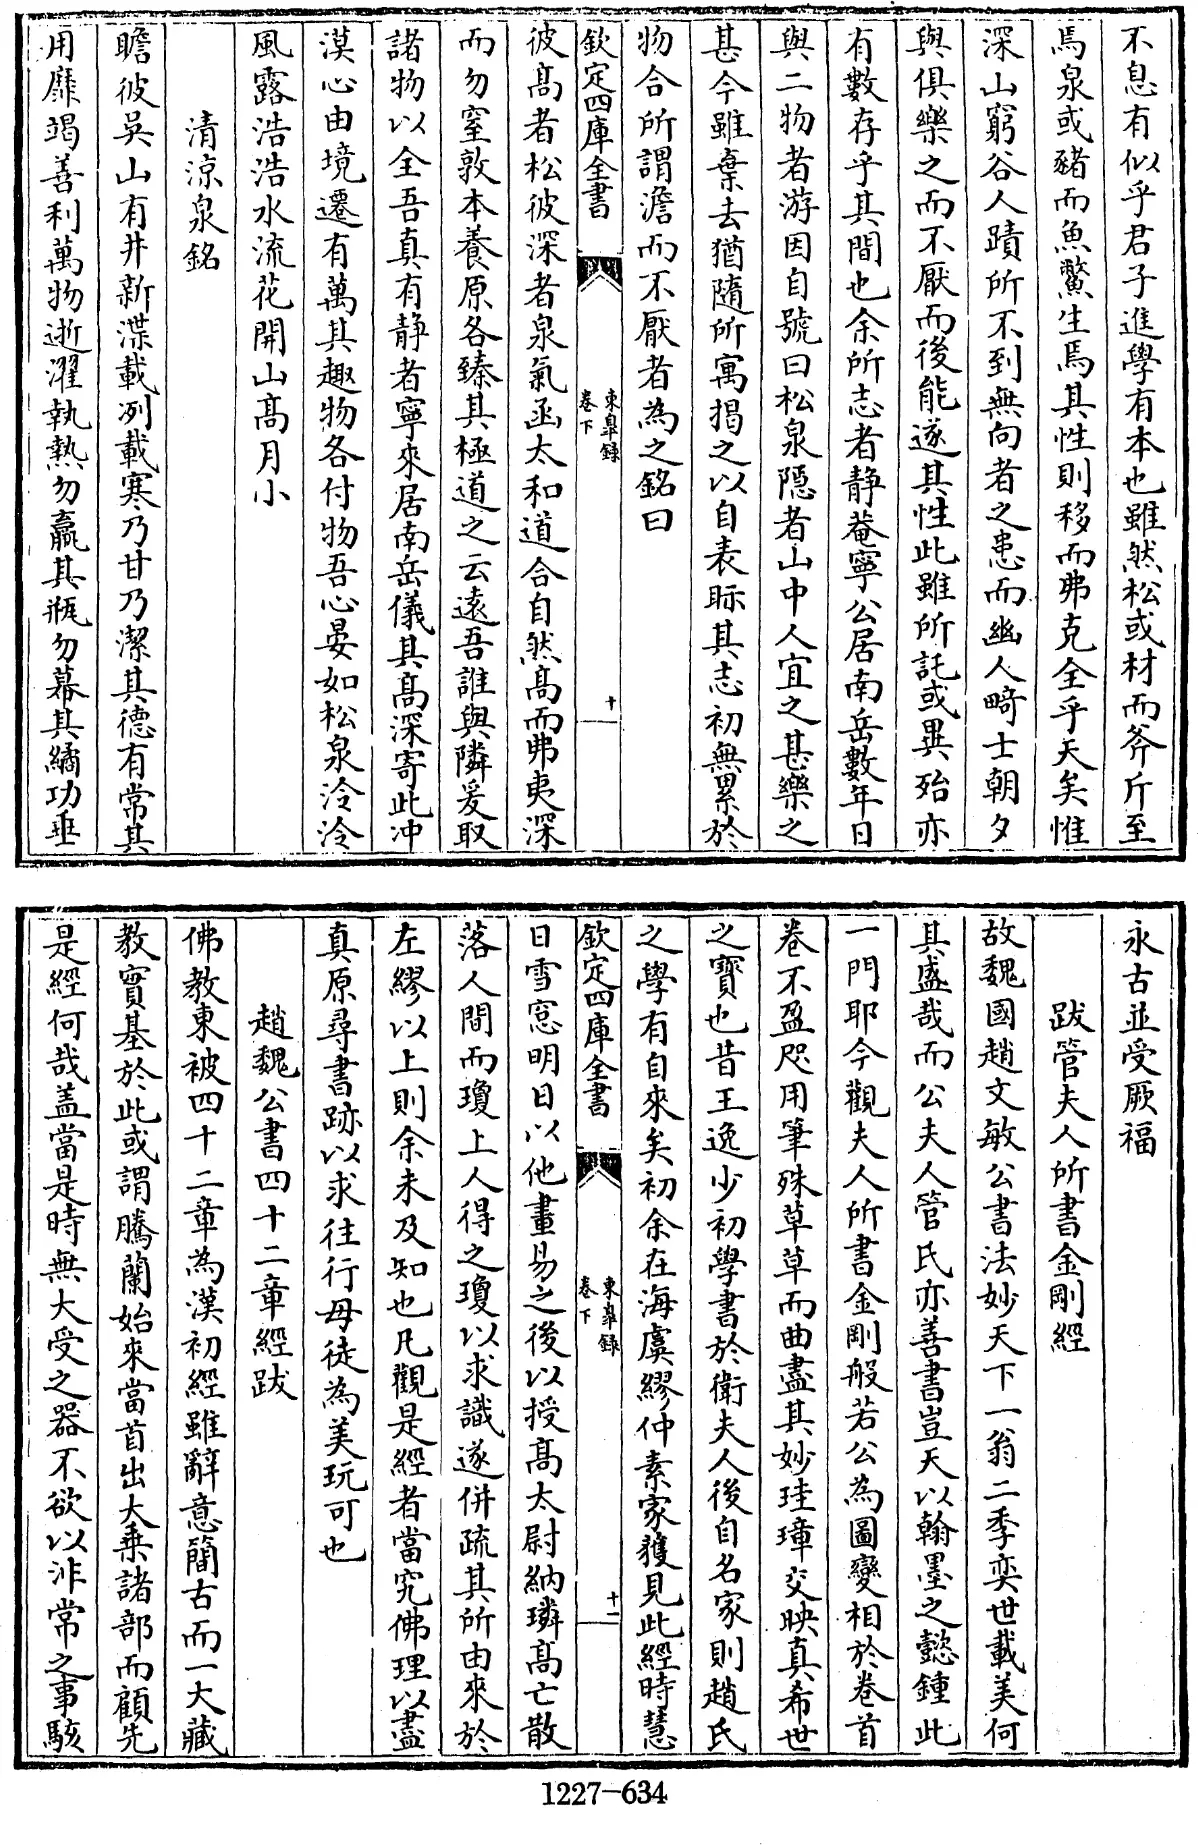 不息有似乎君子進學有本也雖然松或材而斧斤至
焉泉或豬而魚鱉生焉其性則移而弗克全乎天矣惟
深山窮谷人蹟所不到無向者之患而幽人畸士朝夕
與俱樂之而不厭而後能遂其性此雖所託或異殆亦
有數存乎其間也余所志者静菴寧公居南岳數年日
與二物者游因自號曰松泉隱者山中人宜之甚樂之
甚今雖棄去猶隨所寓揭之以自表眎其志初無累於
物合所謂澹而不厭者為之銘曰
欽定四庫全書
東臯録
卷下
十
彼髙者松彼深者泉氣函太和道合自然髙而弗夷深
而勿窒敦本養原各臻其極道之云遠吾誰與隣爰取
諸物以全吾真有静者寧來居南岳儀其髙深寄此冲
漠心由境遷有萬其趣物各付物吾心晏如松泉泠泠
風露浩浩水流花開山髙月小
清涼泉銘
瞻彼吳山有井新渫載冽載寒乃甘乃潔其德有常其
用靡竭善利萬物逝濯執熱勿羸其瓶勿幕其繘功垂
永古並受厥福
跋管夫人所書金剛經
故魏國趙文敏公書法妙天下一翁二季奕世載美何
其盛哉而公夫人管氏亦善書豈天以翰墨之懿鍾此
一門耶今觀夫人所書金剛般若公為圖變相於卷首
卷不盈咫用筆殊草草而曲盡其妙珪璋交映真希世
之寶也昔王逸少初學書於衛夫人後自名家則趙氏
之學有自來矣初余在海虞繆仲素家獲見此經時慧
欽定四庫全書
東臯録
卷下
十一
日雪窓明日以他畫易之後以授髙太尉納璘髙亡散
落人間而瓊上人得之瓊以求識遂併疏其所由來於
左繆以上則余未及知也凡觀是經者當究佛理以盡
真原尋書跡以求往行毋徒為美玩可也
趙魏公書四十二章經跋
佛教東被四十二章為漢初經雖辭意簡古而一大藏
教實基於此或謂騰蘭始來當首出大乗諸部而顧先
是經何哉盖當是時無大受之器不欲以非常之事駭
1227-634